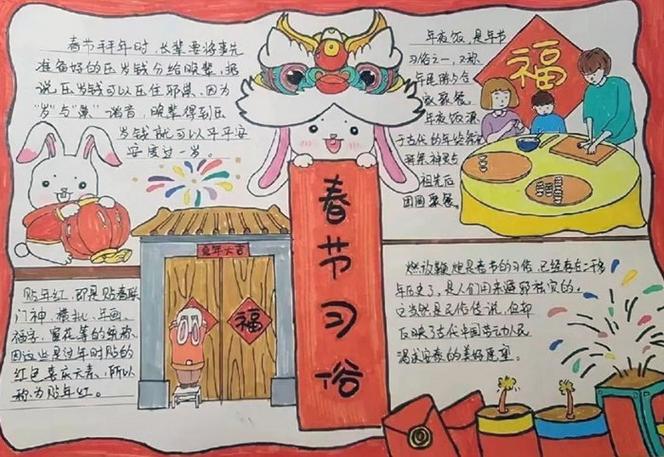 春节拜年时,长辈要将事先
准备好的压岁钱分给晚辈,据
说压岁钱可以压住邪祟,因为
"岁"与"祟"谐音,晚辈得到压
岁钱就可以平平安
安度过一岁。
年夜饭,是年节
习俗之一,又称
年夜饭源
于古代的年终祭祀
祖先后
团圆聚餐。
福
春节习俗
兔年大吉
福
贴年红,即是贴春联
门神、横批、年画、
福字、窗花等的统称,
因这些是过年时贴的
红色喜庆元素,所以
称为贴年红。
燃放鞭炮是春节的习俗,已经存在二千多
年历史了,是人们用来避邪祟的。
这当然是一个传说,但却
反映了古代中国劳动人民
渴求安泰的美好愿望。